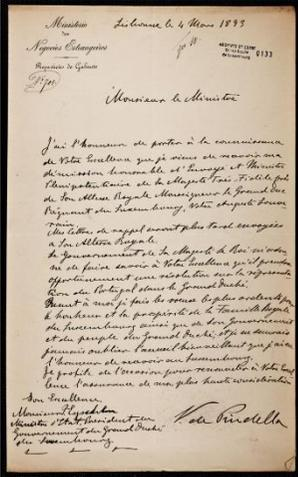 Ministerio
dos
Negocios Estrangeiros
Repartição do Gabinete
Lisbonne le 4 Mars 1893
0133
Monsieur le Ministre
J'ai l'honneur de porter à la connaissance
de Votre Excellence que je viens de recevoir ma
démission honorable d'Envoyé et Ministre
Plénipotentiaire de Sa Majesté Très-Fidèle près
de Son Altesse Royale Monseigneur le Grand Duc
Régnant du Luxembourg, Votre Auguste Souve
rain.
Mes lettres de rappel seront plus tard envoyées
à Son Altesse Royale.
Le Gouvernement de Sa Majesté le Roi m'ordon
ne de faire savoir à Votre Excellence qu'il prendra
opportunement une résolution sur la représenta
tion du Portugal dans le Grand Duché.
Quant à moi je fais les voeux les plus ardents pour
le bonheur et la prospérité de la Famille Royale
du Luxembourg ainsi que de son Gouvernement
et du peuple du Grand Duché, et je ne saurais
jamais oublier l'accueil bienveillant que j'ai eu
l'honneur de recevoir au Luxembourg.
Je profite de l'occasion pour renouveler à Votre Excel
lence l'assurance de ma plus haute considération
Son Excellence
Monsieur Eyschen
Ministre d'Etat, Président du
Gouvernement du Grand Duché
du Luxembourg
V. de Pindella